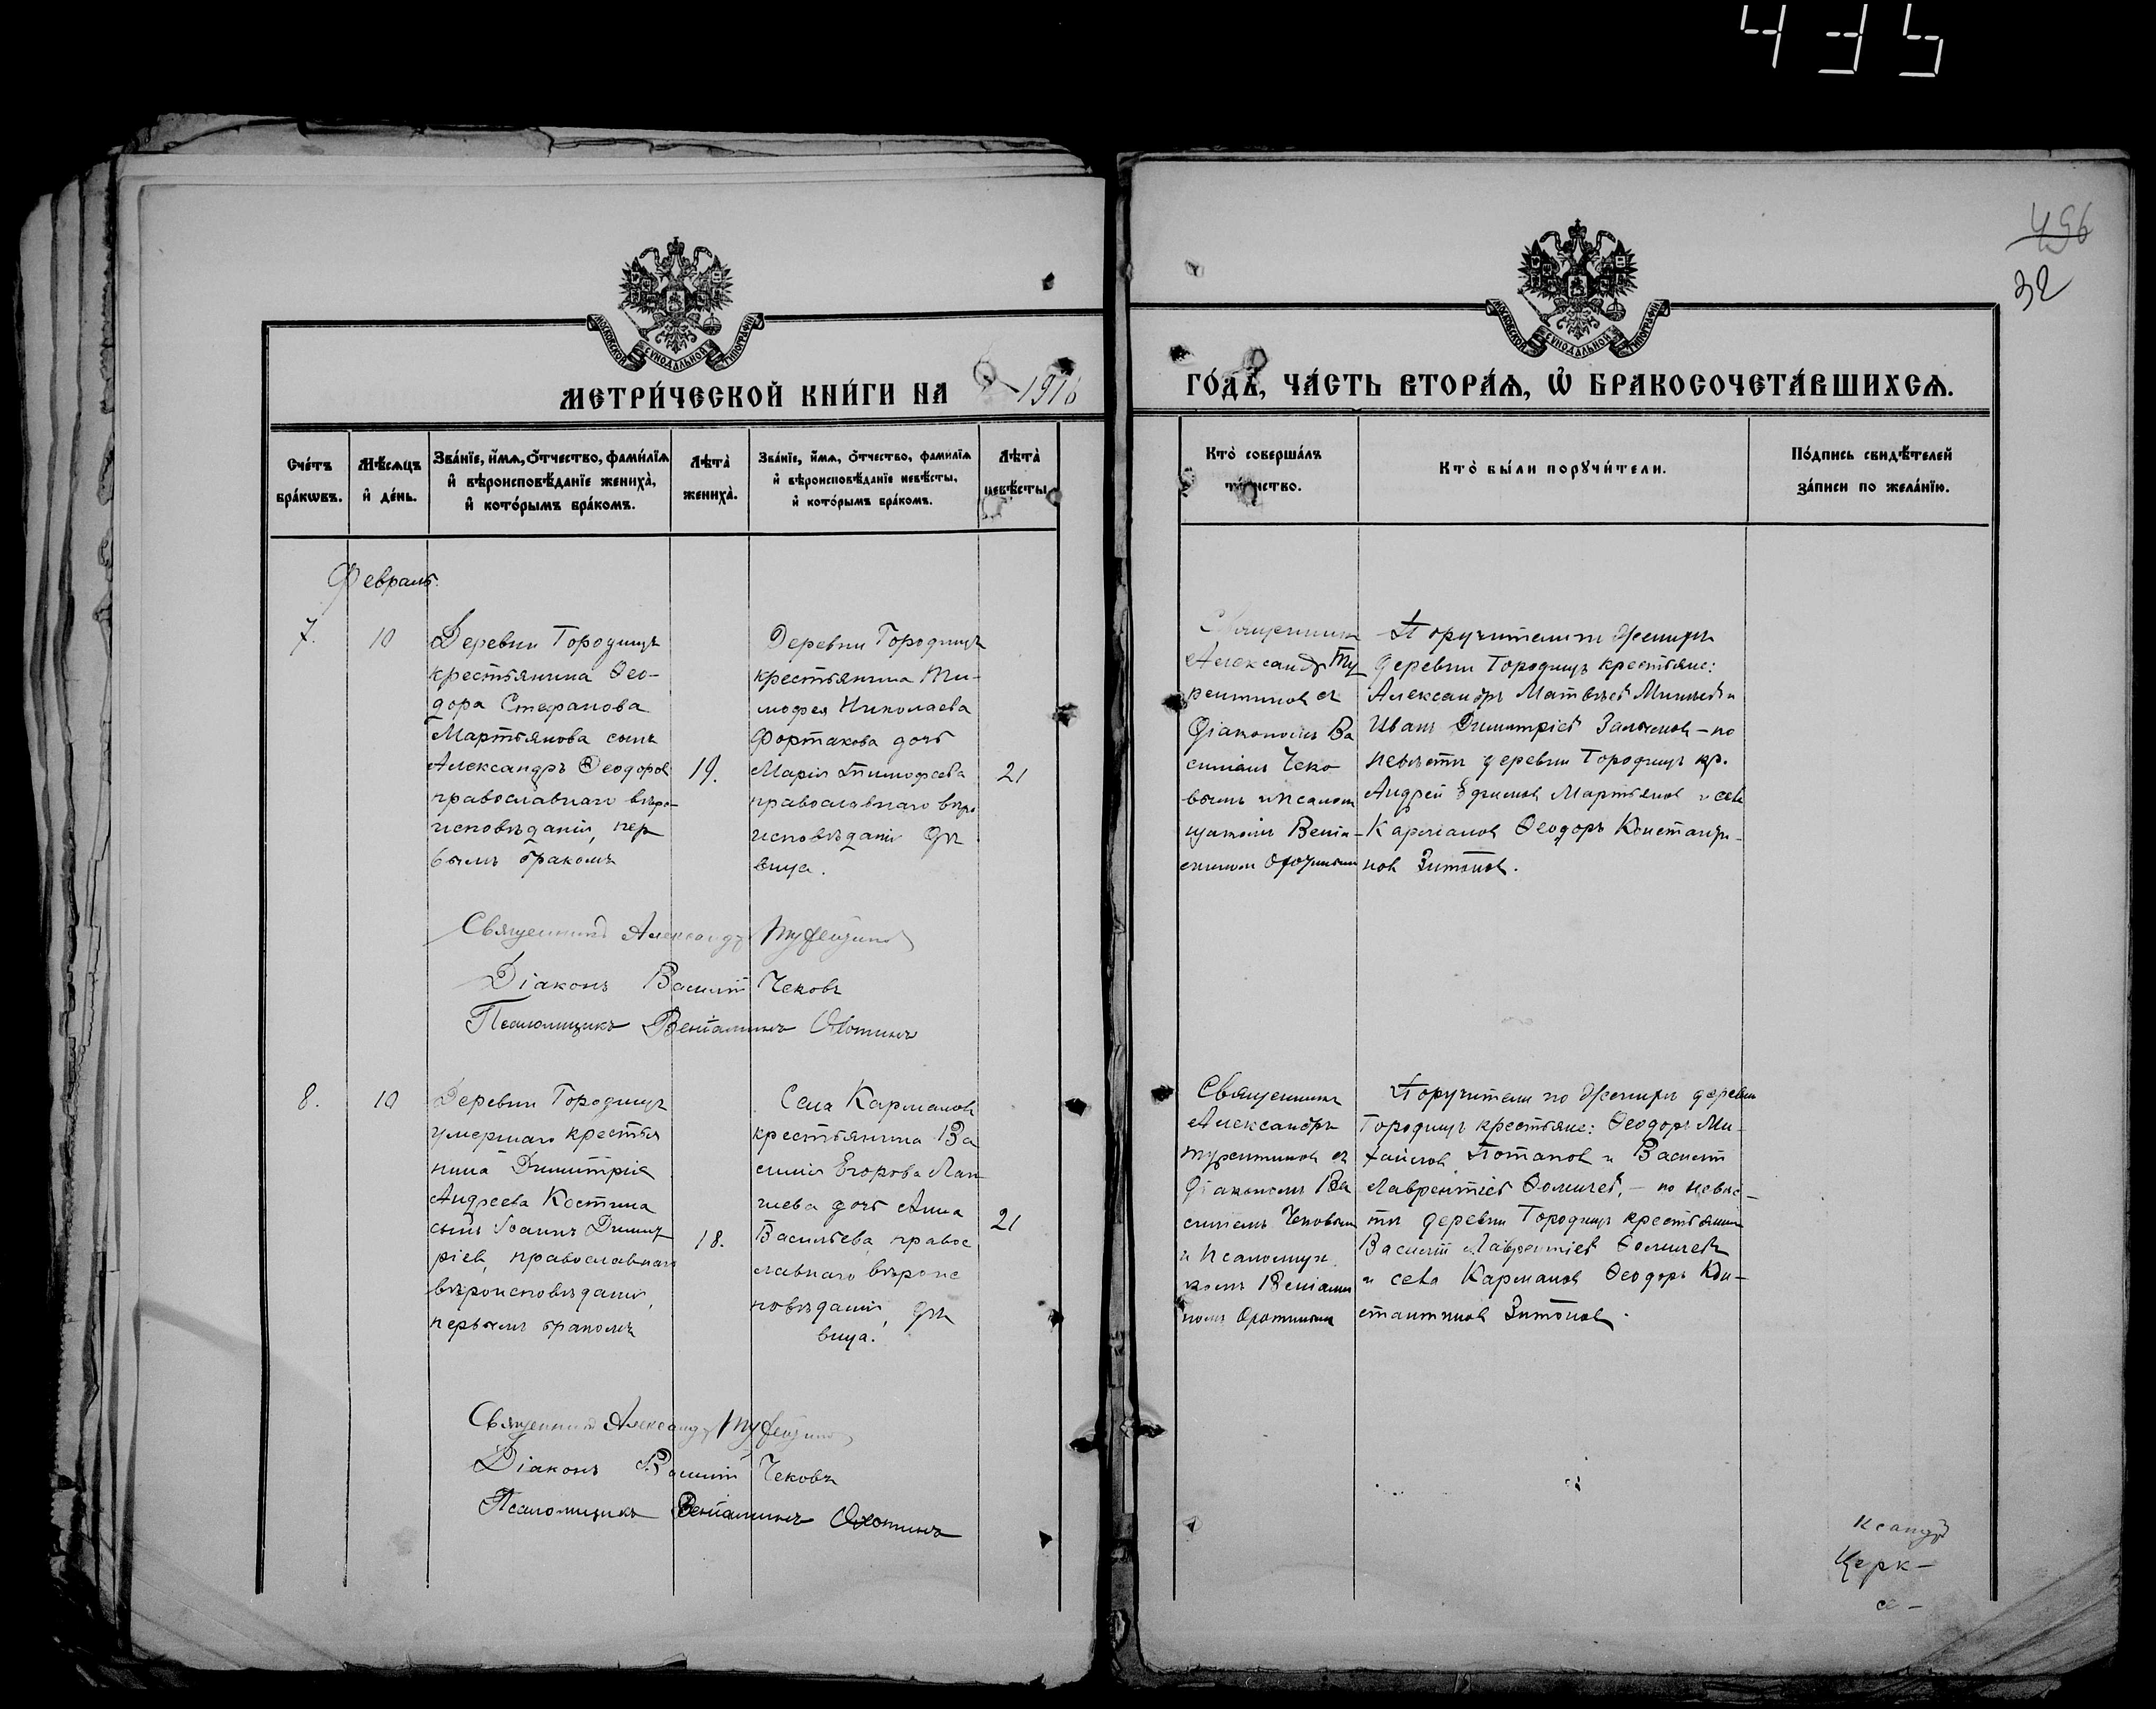 435
496
32
МОСКОВСКОЙ СУНОДАЛЬНОЙ ТИПОГРАФІИ
МОСКОВСКОЙ СУНОДАЛЬНОЙ ТИПОГРАФІИ
МЕТРИ́ЧЕСКОЙ КНИ́ГИ НА 1916
ГО́ДЪ, ЧА́СТЬ ВТОРА́Ѧ, Ѡ҆ БРАКОСОЧЕТА́ВШИХСѦ.
Сче́тъ бра́кωвъ.
Мѣ́сѧцъ и҆ де́нь.
Зва́нїе, и҆́мѧ, о҆́тчество, фами́лїѧ
и҆ вѣроисповѣ́данїе жениха̀,
и҆ кото́рымъ бра́комъ.
Лѣта̀ жениха̀.
Зва́нїе, и҆́мѧ, о҆́тчество, фами́лїѧ
и҆ вѣроисповѣ́данїе невѣ́сты,
и҆ кото́рымъ бра́комъ.
Лѣта̀ невѣ́сты
Кто̀ соверша́лъ
та́инство.
Кто̀ бы́ли порꙋчи́тели.
По́дпись свидѣ́телей
за́писи по жела́нїю.
Февраль.
7.
10
Деревни Городищъ
крестьянина Ѳео-
дора Стефанова
Мартьянова сынъ
Александръ Ѳеодоров
православнаго вѣро-
исповѣданія, пер
вымъ бракомъ
19.
Деревни Городищъ
крестьянина Ти-
мофея Николаева
Фортакова дочь
Марія Тимофеева
православнаго вѣро
исповѣданія дѣ
вица.
21
Священникъ
Александр Ту
рентинов съ
Діакономъ Ва
силіемъ Чеко
вымъ и псалом
щикомъ Веніа-
миномъ Охотинымъ
Поручители жениху
деревни Городищъ крестьяне:
Александръ Матвѣев и
Иванъ Димитріев - по
невѣстѣ деревни Городищъ кр.
Андрей Ефимов Мартьянов и села
Карманов Ѳеодоръ Константи-
нов Зитонов.
Священникъ Александръ
Діаконъ Василій Чековъ
Псаломщикъ Веніаминъ Охотинъ
8.
10
Деревни Городищъ
умершаго крестья
нина Димитрія
Андреева Костина
сынъ Іоаннъ Димит
ріев, православнаго
вѣроисповѣданія,
первымъ бракомъ
18.
Села Карманов
крестьянина Ва
силія Егорова Лап
чева дочь Анна
Васильева правос
лавнаго вѣроис
повѣданія, дѣ
вица.
21
Священникъ
Александръ
Турентинов съ
Діакономъ Ва
силіемъ Чековым
и псаломщи
комъ Веніами
номъ Охотинымъ
Поручители по женихѣ деревни
Городищъ крестьяне: Ѳеодоръ Ми-
хайлов Потапов и Василій
Лаврентіев Ѳомичев, - по невѣс-
тѣ деревни Городищъ крестьянин
Василій Лаврентіев Ѳомичев
и села Карманов Ѳеодоръ Кон-
стантинов Зитонов.
Священникъ Александръ
Діаконъ Василій Чековъ
Псаломщикъ Веніаминъ Охотинъ
ксандръ
Церк-
се-